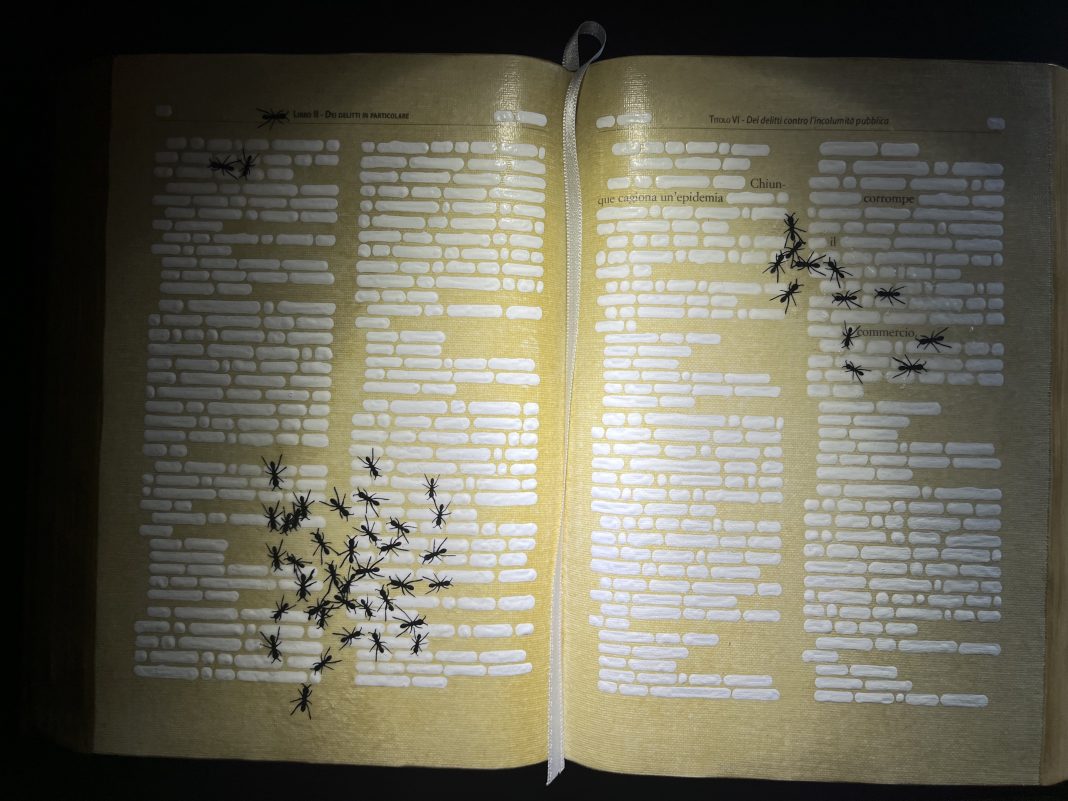 LIBRO II - DEI DELITTI IN PARTICOLARE
TITOLO VI - Dei delitti contro l'incolumità pubblica
Chiun-
que cagiona un'epidemia
corrompe
il
commercio,